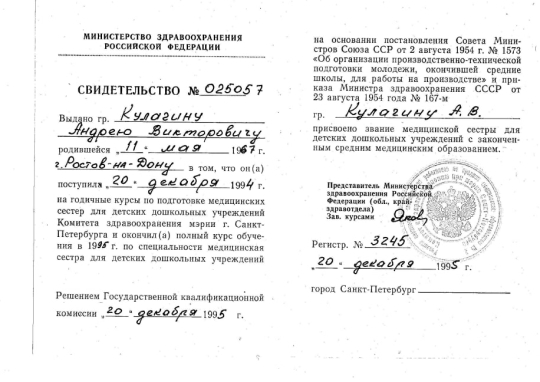 МИНИСТЕРСТВО ЗДРАВООХРАНЕНИЯ
РОССИЙСКОЙ ФЕДЕРАЦИИ
СВИДЕТЕЛЬСТВО № 025057
Выдано гр. Кулагину
Андрею Викторовичу
родившейся „11“ мая 1967 г.
г. Ростов-на-Дону в том, что он(а)
поступила „20“ декабря 1994 г.
на годичные курсы по подготовке медицинских
сестер для детских дошкольных учреждений
Комитета здравоохранения мэрии г. Санкт-
Петербурга и окончил(а) полный курс обуче-
ния в 1995 г. по специальности медицинская
сестра для детских дошкольных учреждений
Решением Государственной квалификационной
комиссии „20“ декабря 1995 г.
на основании постановления Совета Мини-
стров Союза ССР от 2 августа 1954 г. № 1573
«Об организации производственно-технической
подготовки молодежи, окончившей средние
школы, для работы на производстве» и при-
каза Министра здравоохранения СССР от
23 августа 1954 года № 167-м
гр. Кулагину А. В.
присвоено звание медицинской сестры для
детских дошкольных учреждений с закончен-
ным средним медицинским образованием.
Представитель Министерства
здравоохранения Российской
Федерации (обл., край-
здравотдела)
Зав. курсами
Регистр. № 3245
„20“ декабря 1995 г.
город Санкт-Петербург